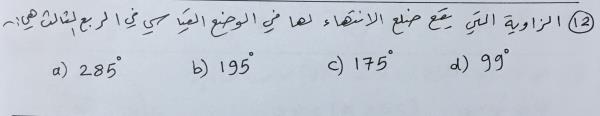 (12) الزاوية التي يقع ضلع الانتهاء لها في الوضع القياسي في الربع الثالث هي :~
a) 285° b) 195° c) 175° d) 99°